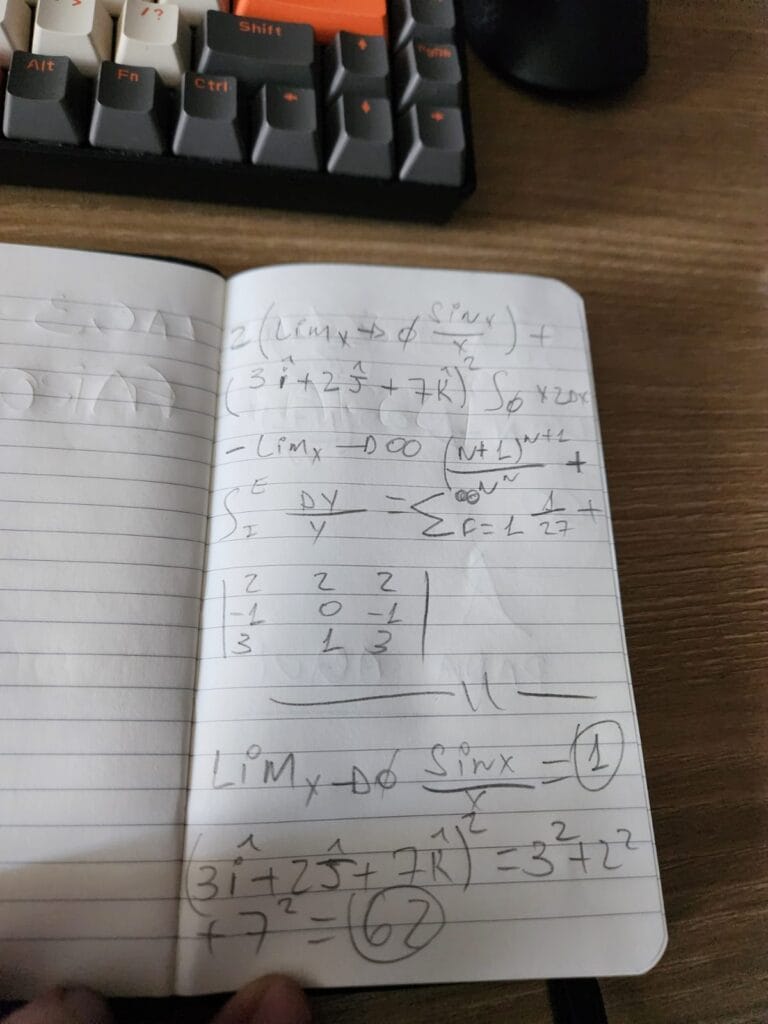 Shift
Alt Fn Ctrl PgDn
2 (LiMx→0 Sinx/x) +
(3î + 2ĵ + 7k̂)² ∫0 x2Dx
- LiMx →∞ (N+1)^N+1/N^N +
∫I^E DY/Y = ∑F=1^∞ 1/27 +
| 2 2 2 |
| -1 0 -1 |
| 3 1 3 |
LiMx→0 Sinx/x = 1
(3î + 2ĵ + 7k̂)² = 3² + 2²
+ 7² = 62